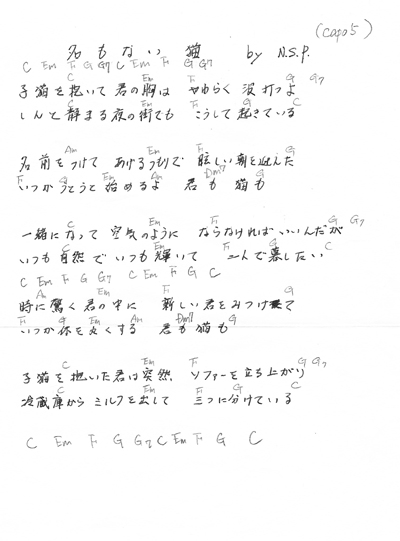 (capo5)
名もない猫 by N.S.P.
C Em F G G7 C Em F G G7
C Em F G G7
子猫を抱いて 君の胸は やわらく 波打つよ
C Em F G C
しんと静まる夜の街でも こうして起きている
Am Em F G
名前をつけて あげるつもりで 眩しい朝を迎えた
F G Em Am Dm7 G
いつか うとうと 始めるよ 君も 猫も
C Em F G G7
一緒になって 空気のように ならなければいいんだが
C Em F G C
いつも自然で いつも輝いて 二人で暮したい
C Em F G G7 C Em F G C
Am Em F G
時に驚く君の中に 新しい君をみつけ て
F G Em Am Dm7 G
いつか体を丸くする 君も猫も
C Em F G G7
子猫を抱いた君は突然 ソファーを立ち上がり
C Em F G C
冷蔵庫から ミルクを出して 三つに分けている
C Em F G G7 C Em F G C